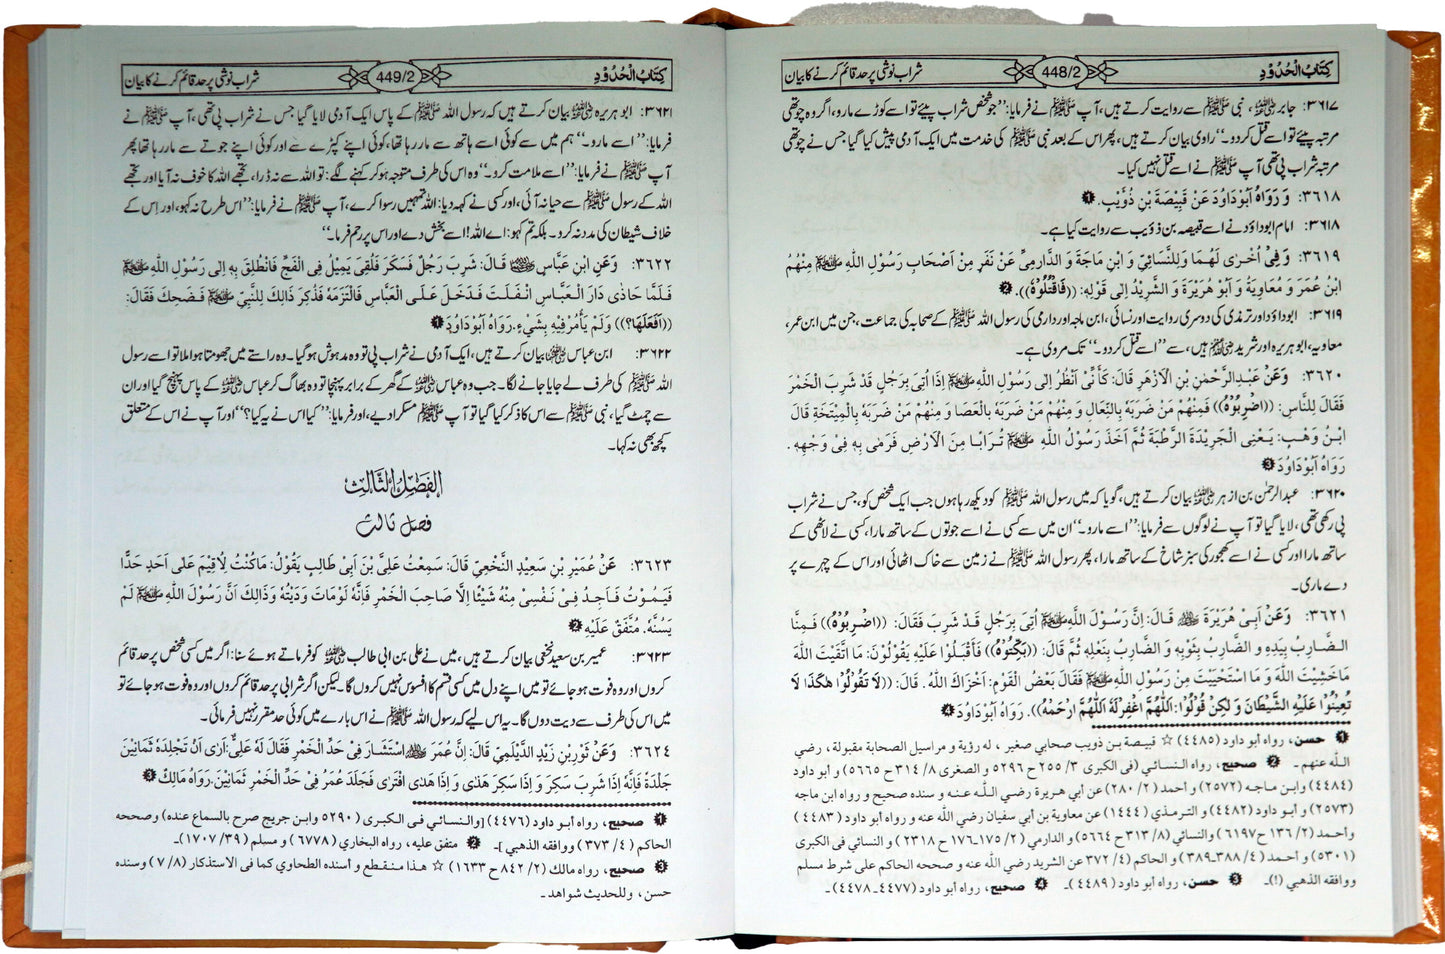 كِتَابُ الْحُدُوْدِ 448/2 شراب نوشی پر حد قائم کرنے کا بیان
۳۶۱۷: جابر رضی اللہ عنہ، نبی ﷺ سے روایت کرتے ہیں، آپ ﷺ نے فرمایا: ’’جو شخص شراب پیئے تو اسے کوڑے مارو، اگر وہ چوتھی
مرتبہ پیئے تو اسے قتل کر دو۔‘‘ راوی بیان کرتے ہیں، پھر اس کے بعد نبی ﷺ کی خدمت میں ایک آدمی پیش کیا گیا جس نے چوتھی
مرتبہ شراب پی تھی آپ ﷺ نے اسے قتل نہیں کیا۔
۳۶۱۸: وَ رَوَاهُ أَبُوْدَاوُدَ عَنْ قَبِيْصَةَ بْنِ ذُؤَيْبٍ. ❶
۳۶۱۸: امام ابوداؤد نے اسے قبیصہ بن ذؤیب سے روایت کیا ہے۔
۳۶۱۹: وَفِیْ أُخْرٰی لَهُمَا وَلِلنَّسَائِيِّ وَ ابْنِ مَاجَةَ وَ الدَّارِمِيِّ عَنْ نَفَرٍ مِنْ أَصْحَابِ رَسُوْلِ اللّٰهِ ﷺ مِنْهُمُ
ابْنُ عُمَرَ وَ مُعَاوِيَةُ وَ أَبُوْ هُرَيْرَةَ وَ الشَّرِيْدُ اِلٰی قَوْلِهِ: ((فَاقْتُلُوْهُ)). ❷
۳۶۱۹: ابوداؤد اور ترمذی کی دوسری روایت اور نسائی، ابن ماجہ اور دارمی کی رسول اللہ ﷺ کے صحابہ کی جماعت، جن میں ابن عمر،
معاویہ، ابو ہریرہ اور شرید رضی اللہ عنہم ہیں، سے ’’اسے قتل کر دو۔‘‘ تک مروی ہے۔
۳۶۲۰: وَعَنْ عَبْدِالرَّحْمٰنِ بْنِ الْأَزْهَرِ قَالَ: كَأَنِّيْ أَنْظُرُ اِلٰی رَسُوْلِ اللّٰهِ ﷺ إِذَا أُتِیَ بِرَجُلٍ قَدْ شَرِبَ الْخَمْرَ
فَقَالَ لِلنَّاسِ: ((اضْرِبُوْهُ)) فَمِنْهُمْ مَنْ ضَرَبَهُ بِالنِّعَالِ وَ مِنْهُمْ مَنْ ضَرَبَهُ بِالْعَصَا وَ مِنْهُمْ مَنْ ضَرَبَهُ بِالْمِيْتَخَةِ قَالَ
ابْنُ وَهْبٍ: يَعْنِی الْجَرِيْدَةَ الرَّطْبَةَ ثُمَّ أَخَذَ رَسُوْلُ اللّٰهِ ﷺ تُرَابًا مِنَ الْأَرْضِ فَرَمٰی بِهِ فِیْ وَجْهِهِ.
رَوَاهُ أَبُوْدَاوُدَ ❸
۳۶۲۰: عبدالرحمٰن بن ازہر رضی اللہ عنہ بیان کرتے ہیں، گویا کہ میں رسول اللہ ﷺ کو دیکھ رہا ہوں جب ایک شخص کو، جس نے شراب
پی رکھی تھی، لایا گیا تو آپ نے لوگوں سے فرمایا: ’’اسے مارو۔‘‘ ان میں سے کسی نے اسے جوتوں کے ساتھ مارا، کسی نے لاٹھی کے
ساتھ مارا اور کسی نے اسے کھجور کی سبز شاخ کے ساتھ مارا، پھر رسول اللہ ﷺ نے زمین سے خاک اٹھائی اور اس کے چہرے پر
دے ماری۔
۳۶۲۱: وَعَنْ أَبِیْ هُرَيْرَةَ رضی اللہ عنہ قَالَ: اِنَّ رَسُوْلَ اللّٰهِ ﷺ أُتِیَ بِرَجُلٍ قَدْ شَرِبَ فَقَالَ: ((اضْرِبُوْهُ)) فَمِنَّا
الضَّارِبُ بِيَدِهِ وَ الضَّارِبُ بِثَوْبِهِ وَ الضَّارِبُ بِنَعْلِهِ ثُمَّ قَالَ: ((بَكِّتُوْهُ)) فَأَقْبَلُوْا عَلَيْهِ يَقُوْلُوْنَ: مَا اتَّقَيْتَ اللّٰهَ
مَاخَشِيْتَ اللّٰهَ وَ مَا اسْتَحْيَيْتَ مِنْ رَسُوْلِ اللّٰهِ ﷺ فَقَالَ بَعْضُ الْقَوْمِ: أَخْزَاكَ اللّٰهُ. قَالَ: ((لَا تَقُوْلُوْا هٰكَذَا لَا
تُعِيْنُوْا عَلَيْهِ الشَّيْطَانَ وَ لٰكِنْ قُوْلُوْا: اَللّٰهُمَّ اغْفِرْلَهُ اَللّٰهُمَّ ارْحَمْهُ)). رَوَاهُ أَبُوْدَاوُدَ ❹
❶ حسن، رواه أبو داود (٤٤٨٥) ☆ قبيصة بن ذويب صحابي صغير، له رؤية و مراسيل الصحابة مقبولة، رضي
الله عنهم۔ ❷ صحيح، رواه النسائي (في الكبرى ٣/ ٢٥٥ ح ٥٢٩٦ و الصغرى ٨/ ٣١٤ ح ٥٦٦٥) و أبو داود
(٤٤٨٤) وابن ماجه (٢٥٧٢) و أحمد (٢/ ٢٨٠) عن أبي هريرة رضي الله عنه و سنده صحيح و رواه ابن ماجه
(٢٥٧٣) و أبو داود (٤٤٨٢) و الترمذي (١٤٤٤) عن معاوية بن أبي سفيان رضي الله عنه و أبو داود (٤٤٨٣)
وأحمد (٢/ ١٣٦ ح ٦١٩٧) والنسائي (٨/ ٣١٣ ح ٥٦٦٤) و الدارمي (٢/ ١٧٥-١٧٦ ح ٢٣١٨) و النسائي في الكبرى
(٥٣٠١) و أحمد (٤/ ٣٨٨-٣٨٩) و الحاكم (٤/ ٣٧٢) عن الشريد رضي الله عنه و صححه الحاكم على شرط مسلم
ووافقه الذهبي (!)۔ ❸ حسن، رواه أبو داود (٤٤٨٩)۔ ❹ صحيح، رواه أبو داود (٤٤٧٧-٤٤٧٨)۔
كِتَابُ الْحُدُوْدِ 449/2 شراب نوشی پر حد قائم کرنے کا بیان
۳۶۲۱: ابو ہریرہ رضی اللہ عنہ بیان کرتے ہیں کہ رسول اللہ ﷺ کے پاس ایک آدمی لایا گیا جس نے شراب پی تھی، آپ ﷺ نے
فرمایا: ’’اسے مارو۔‘‘ ہم میں سے کوئی اسے ہاتھ سے مار رہا تھا، کوئی اپنے کپڑے سے اور کوئی اپنے جوتے سے مار رہا تھا پھر
آپ ﷺ نے فرمایا: ’’اسے ملامت کرو۔‘‘ وہ اس کی طرف متوجہ ہو کر کہنے لگے: تو اللہ سے نہ ڈرا، تجھے اللہ کا خوف نہ آیا اور تجھے
اللہ کے رسول ﷺ سے حیا نہ آئی، اور کسی نے کہہ دیا: اللہ تمہیں رسوا کرے، آپ ﷺ نے فرمایا: ’’اس طرح نہ کہو، اور اس کے
خلاف شیطان کی مدد نہ کرو۔ بلکہ تم کہو: اے اللہ! اسے بخش دے اور اس پر رحم فرما۔‘‘
۳۶۲۲: وَعَنِ ابْنِ عَبَّاسٍ رضی اللہ عنہما قَالَ: شَرِبَ رَجُلٌ فَسَكَرَ فَلُقِیَ يَمِيْلُ فِی الْفَجِّ فَانْطُلِقَ بِهِ اِلٰی رَسُوْلِ اللّٰهِ ﷺ
فَلَمَّا حَاذٰی دَارَ الْعَبَّاسِ انْفَلَتَ فَدَخَلَ عَلَی الْعَبَّاسِ فَالْتَزَمَهُ فَذُكِرَ ذَالِكَ لِلنَّبِیِّ ﷺ فَضَحِكَ فَقَالَ:
((أَفَعَلَهَا؟)) وَلَمْ يَأْمُرْ فِيْهِ بِشَیْءٍ. رَوَاهُ أَبُوْدَاوُدَ ❶
۳۶۲۲: ابن عباس رضی اللہ عنہما بیان کرتے ہیں، ایک آدمی نے شراب پی تو وہ مدہوش ہو گیا۔ وہ راستے میں جھومتا ہوا ملا تو اسے رسول
اللہ ﷺ کی طرف لے جایا جانے لگا۔ جب وہ عباس رضی اللہ عنہ کے گھر کے برابر پہنچا تو وہ بھاگ کر عباس رضی اللہ عنہ کے پاس پہنچ گیا اور ان
سے چمٹ گیا، نبی ﷺ سے اس کا ذکر کیا گیا تو آپ ﷺ مسکرا دیے، اور فرمایا: ’’کیا اس نے یہ کیا؟‘‘ اور آپ نے اس کے متعلق
کچھ بھی نہ کہا۔
الفَصْلُ الثَّالِثُ
فصل ثالث
۳۶۲۳: عَنْ عُمَيْرِ بْنِ سَعِيْدٍ النَّخَعِيِّ قَالَ: سَمِعْتُ عَلِیَّ بْنَ أَبِیْ طَالِبٍ يَقُوْلُ: مَاكُنْتُ لِأُقِيْمَ عَلٰی أَحَدٍ حَدًّا
فَيَمُوْتُ فَأَجِدُ فِیْ نَفْسِیْ مِنْهُ شَيْئًا اِلَّا صَاحِبَ الْخَمْرِ فَاِنَّهُ لَوْمَاتَ وَدَيْتُهُ وَذَالِكَ أَنَّ رَسُوْلَ اللّٰهِ ﷺ لَمْ
يَسُنَّهُ. مُتَّفَقٌ عَلَيْهِ ❷
۳۶۲۳: عمیر بن سعید نخعی بیان کرتے ہیں، میں نے علی بن ابی طالب رضی اللہ عنہ کو فرماتے ہوئے سنا: اگر میں کسی شخص پر حد قائم
کروں اور وہ فوت ہو جائے تو میں اپنے دل میں کسی قسم کا افسوس نہیں کروں گا۔ لیکن اگر شرابی پر حد قائم کروں اور وہ فوت ہو جائے تو
میں اس کی طرف سے دیت دوں گا۔ یہ اس لیے کہ رسول اللہ ﷺ نے اس بارے میں کوئی حد مقرر نہیں فرمائی۔
۳۶۲۴: وَعَنْ ثَوْرِبْنِ زَيْدٍ الدَّيْلَمِيِّ قَالَ: اِنَّ عُمَرَ رضی اللہ عنہ اسْتَشَارَ فِیْ حَدِّ الْخَمْرِ فَقَالَ لَهُ عَلِیٌّ: أَرٰی أَنْ تَجْلِدَهُ ثَمَانِيْنَ
جَلْدَةً فَاِنَّهُ اِذَا شَرِبَ سَكِرَ وَ اِذَا سَكِرَ هَذٰی وَ اِذَا هَذٰی افْتَرٰی فَجَلَدَ عُمَرُ فِیْ حَدِّ الْخَمْرِ ثَمَانِيْنَ. رَوَاهُ مَالِكٌ ❸
❶ صحيح، رواه أبو داود (٤٤٧٦) [والنسائي في الكبرى (٥٢٩٠ وابن جريج صرح بالسماع عنده) وصححه
الحاكم (٤/ ٣٧٣) ووافقه الذهبي]۔ ❷ متفق عليه، رواه البخاري (٦٧٧٨) و مسلم (٣٩/ ١٧٠٧)۔
❸ صحيح، رواه مالك (٢/ ٨٤٢ ح ١٦٣٣) ☆ هذا منقطع و أسنده الطحاوي كما في الاستذكار (٨/ ٧) وسنده
حسن، وللحديث شواهد۔